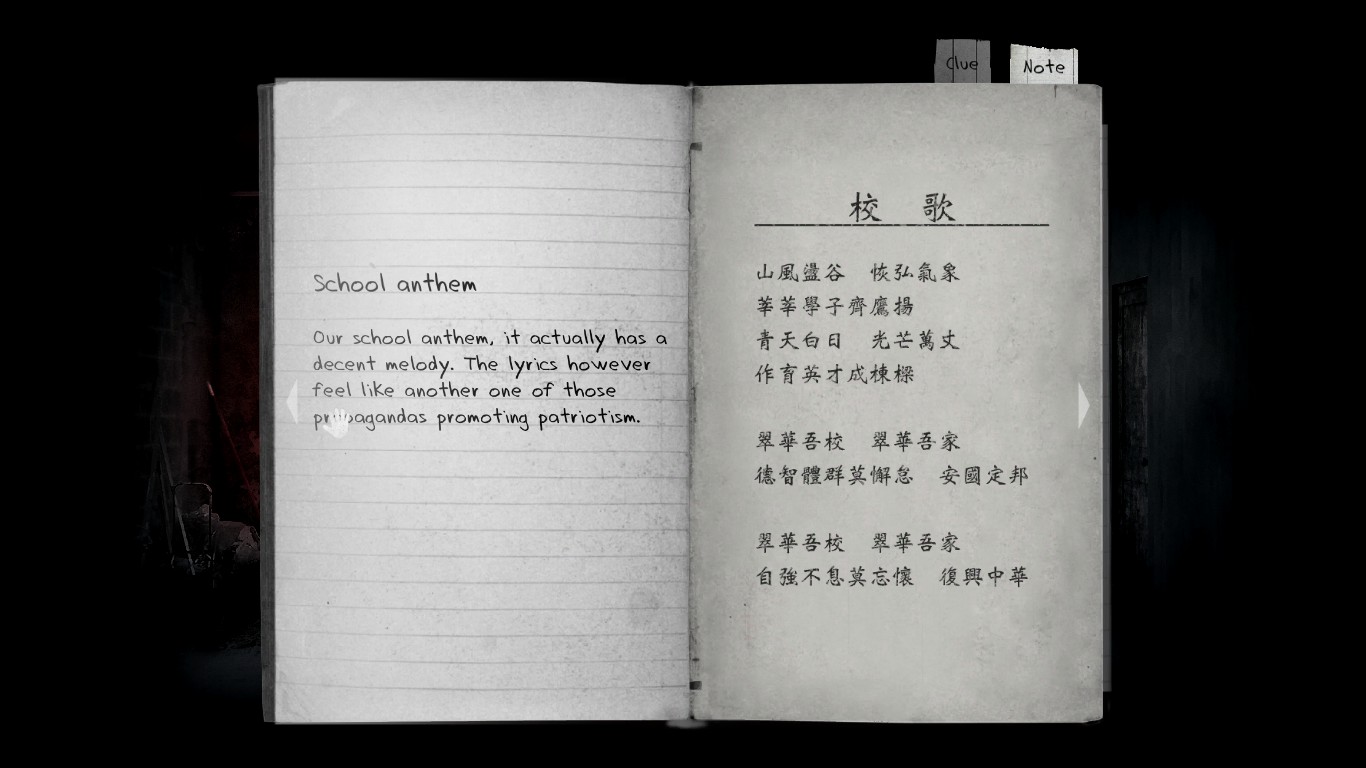 Clue
Note
School anthem
Our school anthem, it actually has a
decent melody. The lyrics however
feel like another one of those
propagandas promoting patriotism.
校 歌
山風盪谷 恢弘氣象
莘莘學子齊鷹揚
青天白日 光芒萬丈
作育英才成棟樑
翠華吾校 翠華吾家
德智體群莫懈怠 安國定邦
翠華吾校 翠華吾家
自強不息莫忘懷 復興中華